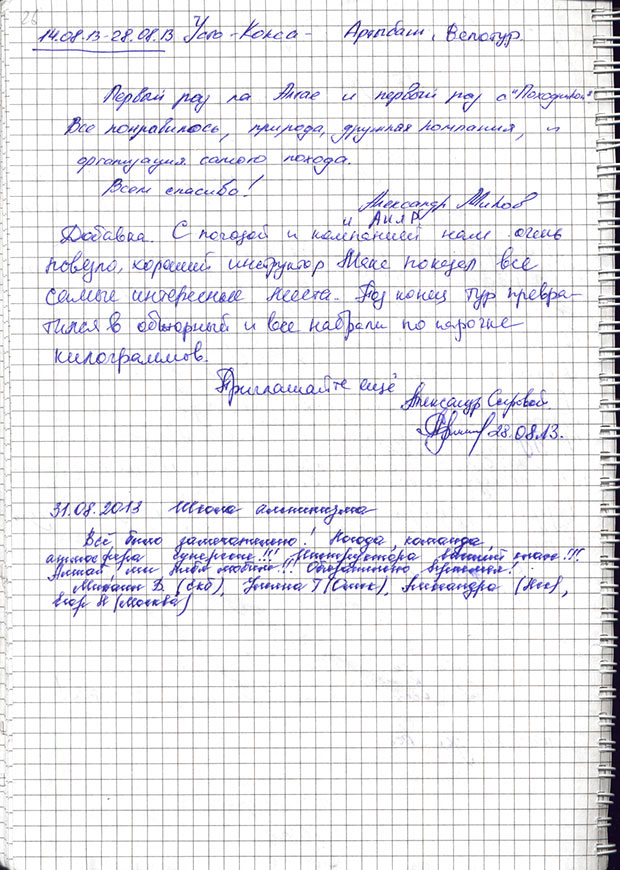 26
14.08.13-28.08.13 Усть-Кокса - Артыбаш, Велотур
Первый раз на Алтае и первый раз с "Походником"
Все понравилось, природа, дружная компания, и
организация самого похода.
Всем спасибо!
Александр
и АКЛР
Добавка. С погодой и компанией нам очень
повезло, хороший инструктор Макс показал все
самые интересные места. Под конец тур превра-
тился в обжорный и все набрали по парочке
килограммов.
Приглашайте ещё
Александр
28.08.13.
31.08.2013 Школа альпинизма
Всё было замечательно! Погода, команда
атмосфера супер!!! Инструктора высший класс!!!
Алтай мы тебя любим!!! Обязательно вернемся!
Михаил В. (Спб), Т (Омск), Александра (Нск),
Егор Н (Москва)